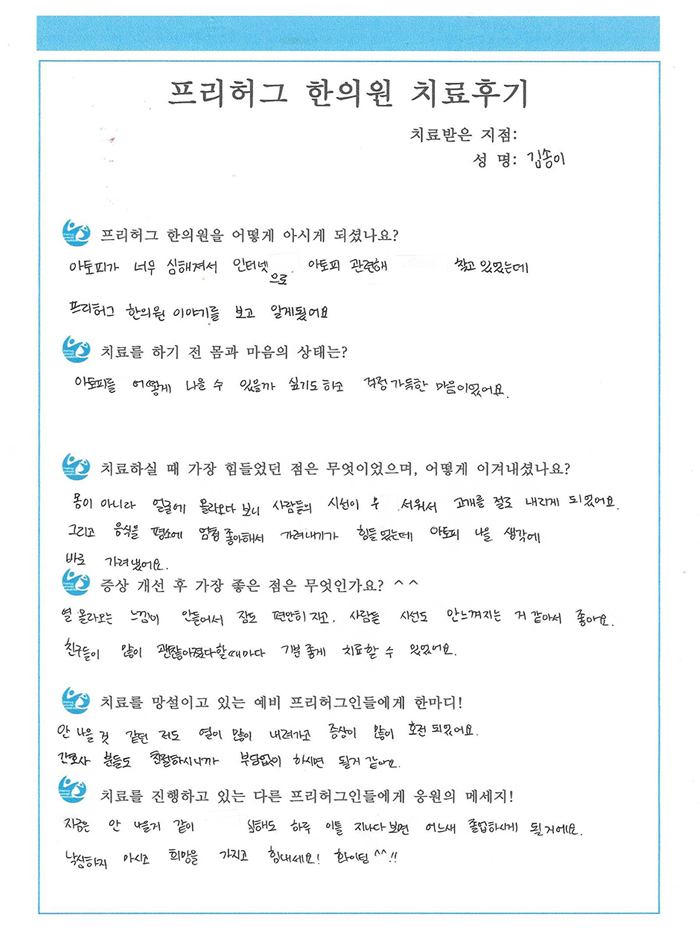 프리허그 한의원 치료후기
치료받은 지점:
성 명: 김송이
프리허그 한의원을 어떻게 아시게 되셨나요?
아토피가 너무 심해져서 인터넷으로 아토피 관련해 찾고 있었는데
프리허그 한의원 이야기를 보고 알게됬어요
치료를 하기 전 몸과 마음의 상태는?
아토피를 어떻게 나을 수 있을까 싶기도 하고 걱정 가득한 마음이였어요.
치료하실 때 가장 힘들었던 점은 무엇이었으며, 어떻게 이겨내셨나요?
몸이 아니라 얼굴에 올라오다 보니 사람들의 시선이 우 서워서 고개를 절로 내리게 되었어요.
그리고 음식을 평소에 엄청 좋아해서 가려내기가 힘들었는데 아토피 나을 생각에
바로 가려냈어요.
증상 개선 후 가장 좋은 점은 무엇인가요? ^^
열 올라오는 느낌이 안들어서 잠도 편안히 자고. 사람들 시선도 안느껴지는 거 같아서 좋아요.
친구들이 많이 괜찮아졌다할때마다 기분 좋게 치료할 수 있었어요.
치료를 망설이고 있는 예비 프리허그인들에게 한마디!
안 나을 것 같던 저도 열이 많이 내려가고 증상이 많이 호전 되었어요.
간호사 분들도 친절하시니까 부담없이 하시면 될거 같아요.
치료를 진행하고 있는 다른 프리허그인들에게 응원의 메세지!
지금은 안 나을거 같이 심해도 하루 이틀 지나다보면 어느새 졸업하시게 될거에요.
낙심하지 마시고 희망을 가지고 힘내세요! 화이팅^^!!